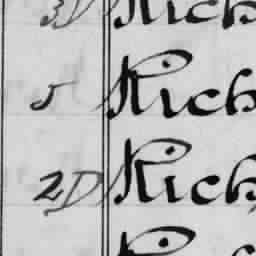 3D Rich
5 Rich
2D Rich